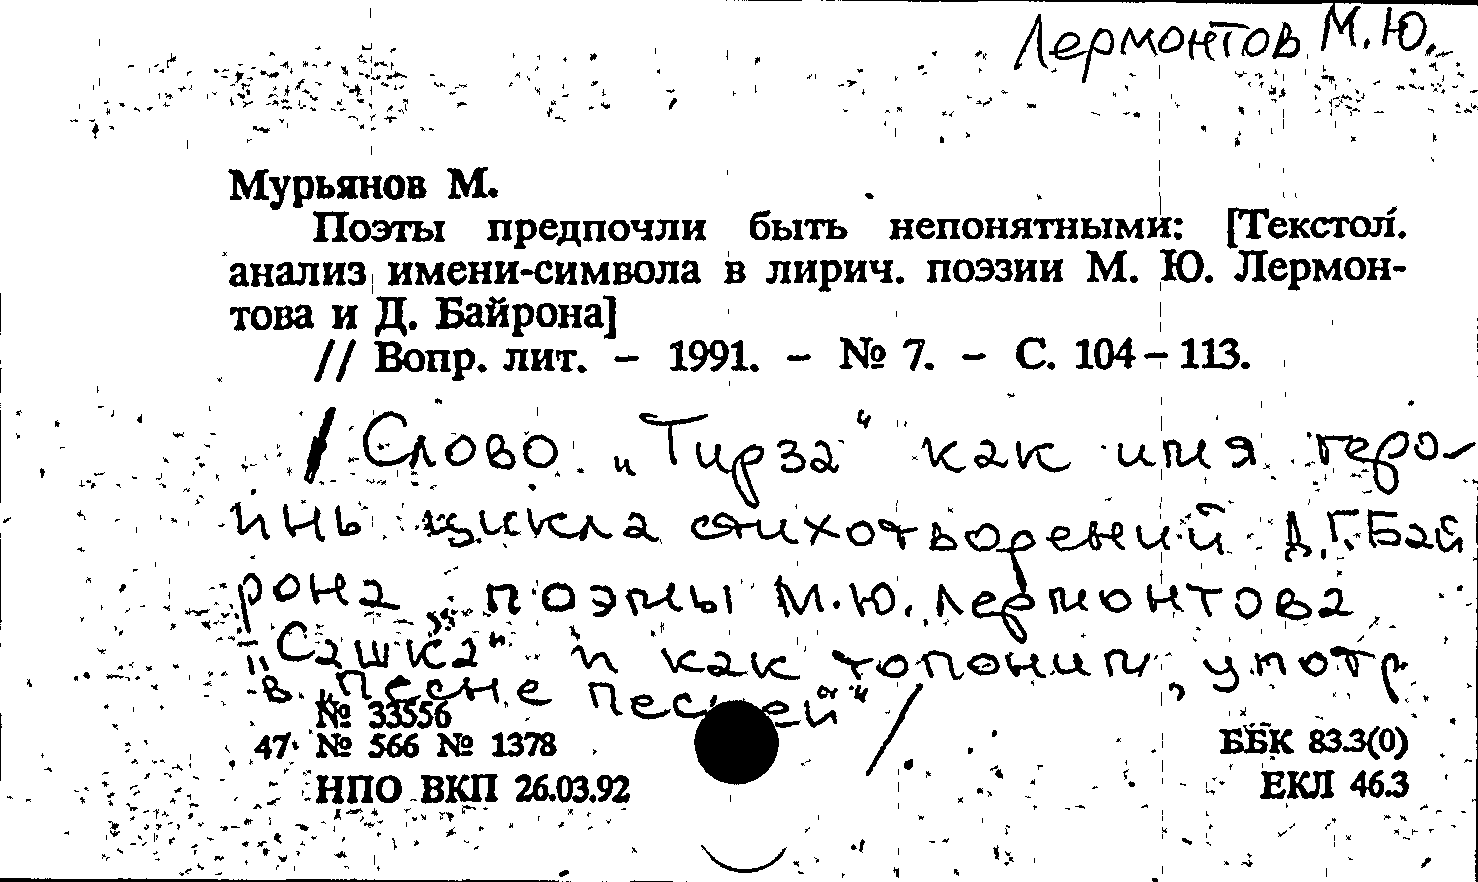 Лермонтов М.Ю.
Мурьянов М.
Поэты предпочли быть непонятными: [Текстол.
анализ имени-символа в лирич. поэзии М. Ю. Лермон-
това и Д. Байрона]
// Вопр. лит. – 1991. – № 7. – С. 104–113.
/ Слово „Тирза“ как имя геро-
инь цикла стихотворений Д.Г.Бай
рона, поэмы М.Ю.Лермонтова
„Сашка“ и как топоним, употр
в „Песне песней“ /
№ 33556
47 № 566 № 1378
НПО ВКП 26.03.92
ББК 83.3(0)
ЕКЛ 46.3